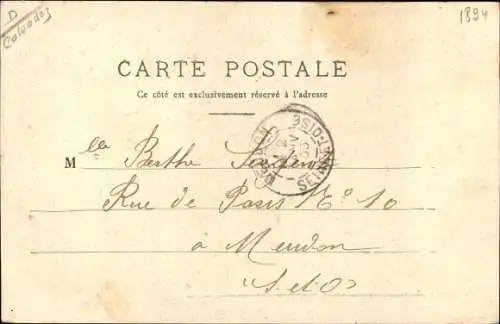 D
Calvados
1894
CARTE POSTALE
Ce côté est exclusivement réservé à l'adresse
Mlle Berthe
Rue de Paris N° 10
à Meudon
(S. et O.)
SEINE-ET-OISE